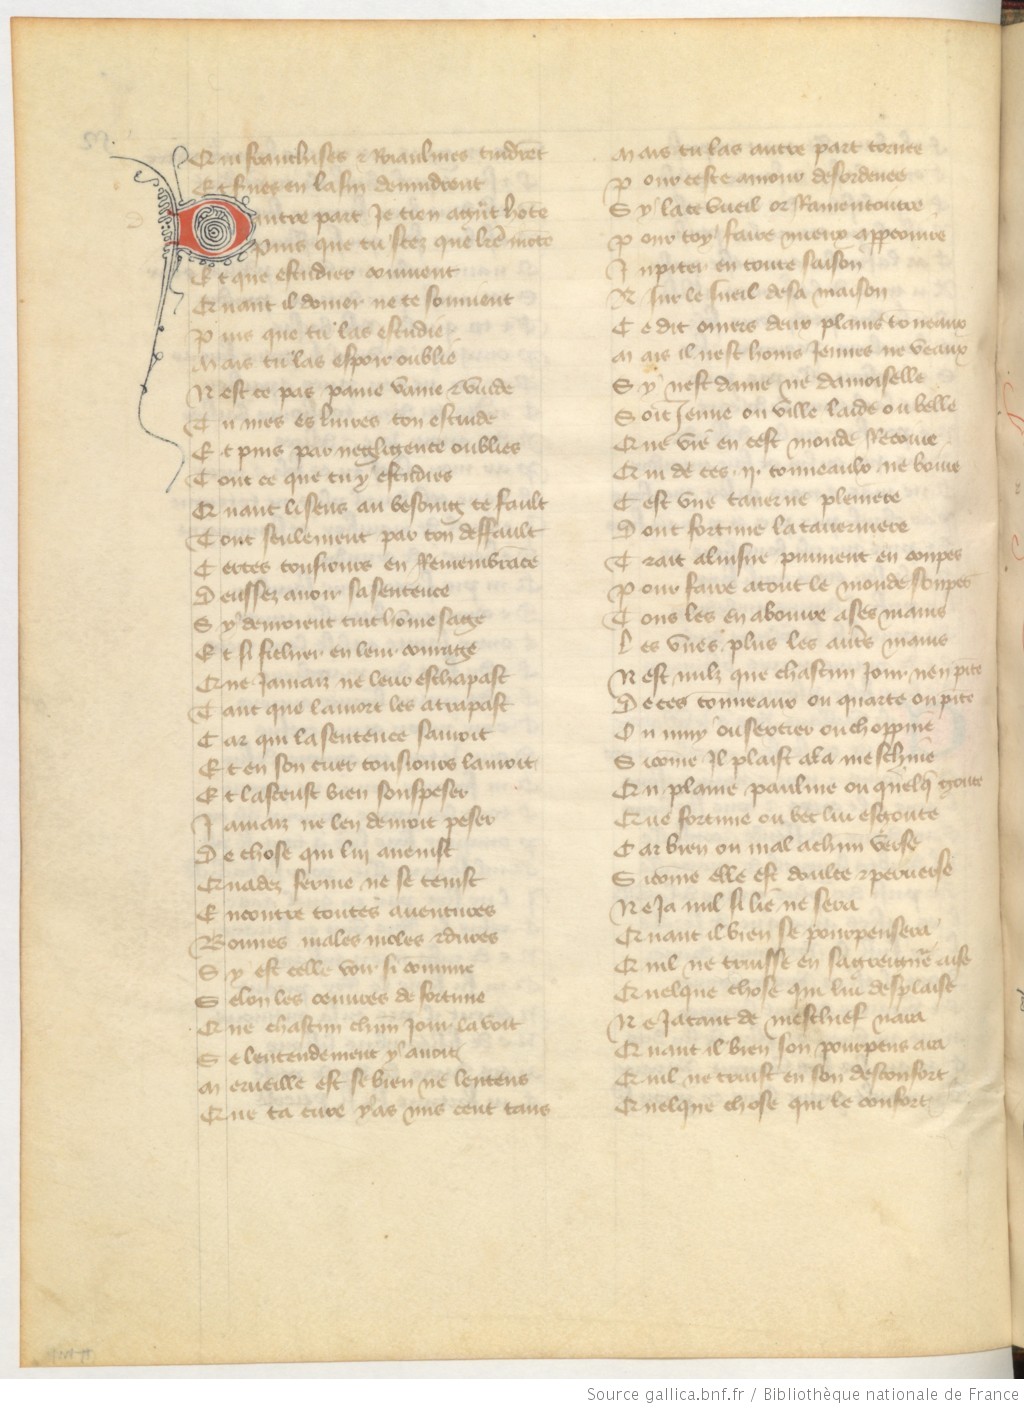 Qui franchises & Roiaulmes tindrent
Et serfs en la fin devindrent
D autre part Je tien a grant hote
Puis que tu scez que lr̄e note
Et que estudier convient
Quant il d'omer ne te souvient
Puis que tu las estudie
Mais tu las espoir oublie
N est ce pas paine vaine & vuide
Tu mes es livres ton estuide
Et puis par negligence oublies
Tout ce que tu y estudies
Quant li sens au besoing te fault
Tout seulement par ton deffault
Certes tousiours en Remembrāce
Deussez avoir sa sentence
Sy devroient tuit hōme sage
Et si fichier en leur courage
Que Jamaiz ne leur eschapast
Tant que la mort les atrapast
Car qui la sentence sauroit
Et en son cuer tousiours lauroit
Et la sceust bien souspeser
Jamaiz ne len devroit peser
De chose qui luy avenist
Quadez ferme ne se tenist
Encontre toutes aventures
Bonnes males moles & dures
Sy est elle voir si comune
Selon les oeuvres de fortune
Que chascun chūn Jour la voit
Se lentendement y avoit
Merveille est se bien ne lentens
Que ta cure y as mis cent tans
Mais tu las autre part tornee
Pour ceste amour desordenee
Sy la te vueil or Ramentevoire
Pour toy faire mieux appercoivre
Jupiter en toute saison
A sur le sueil de sa maison
Ce dit omers deux plains tonneaux
Mais il nest homs Jeunes ne veaux
Sy nest dame ne damoiselle
Soit Jeune ou vielle laide ou belle
Que vie en cest monde Recoive
Qui de ces .ij. tonneaulx ne boive
C est une taverne pleniere
Dont fortune la taverniere
Trait aluisne piument en coupes
Pour faire a tout le monde soupes
Tous les en aboivre a ses mains
Les unes plus les autres mains
N est nulz que chascun Jour nen pite
De ces tonneaux ou quarte ou pite
Ou muy ou sextier ou choppine
Sicōme Il plaist a la meschine
Ou plaine paulme ou quelq̄ goute
Que fortune ou bec lui esgoute
Car bien ou mal a chūn verse
Sicōme elle est doulce & perverse
Ne Ja nul si lie ne sera
Quant il bien se pourpensera
Quil ne truisse en sa greigneur aise
Quelque chose qui lui desplaise
Ne Ja tant de meschief naura
Quant il bien son pourpens aura
Quil ne truist en son desconfort
Quelque chose qui le confort
Source gallica.bnf.fr / Bibliothèque nationale de France